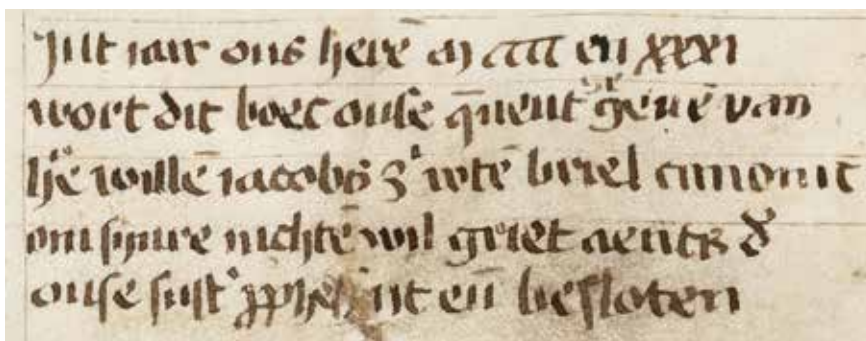 Jnt iair ons here̅ m cccc en̅ xxxi
wort dit boec onse q̅uent g̅eue̅ van
he̅ wille̅ iacobs z wte̅ briel canonic
om sijnre nichte̅ wil griet aents d
onse sust en̅ besloten